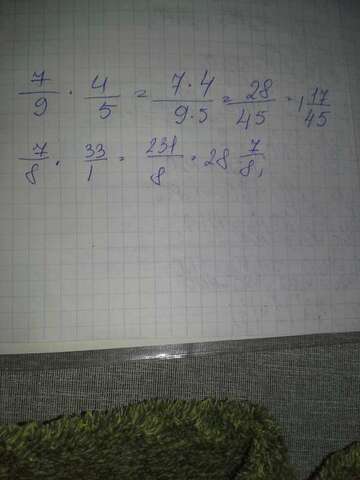 7/9 · 4/5 = 7·4/9·5 = 28/45 = 1 17/45
7/8 · 33/1 = 231/8 = 28 7/8,